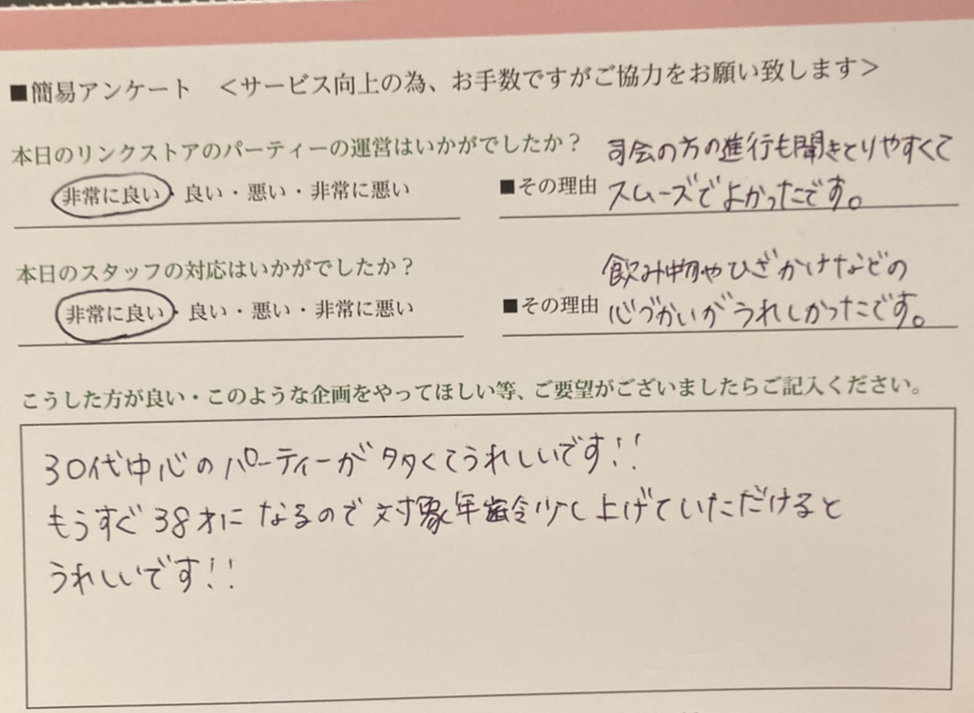 ■簡易アンケート　＜サービス向上の為、お手数ですがご協力をお願い致します＞
本日のリンクストアのパーティーの運営はいかがでしたか？
非常に良い・良い・悪い・非常に悪い
■その理由
司会の方の進行も聞きとりやすくて
スムーズでよかったです。
本日のスタッフの対応はいかがでしたか？
非常に良い・良い・悪い・非常に悪い
■その理由
飲み物やひざかけなどの
心づかいがうれしかったです。
こうした方が良い・このような企画をやってほしい等、ご要望がございましたらご記入ください。
30代中心のパーティーが多くてうれしいです!!
もうすぐ38才になるので対象年齢少し上げていただけると
うれしいです!!